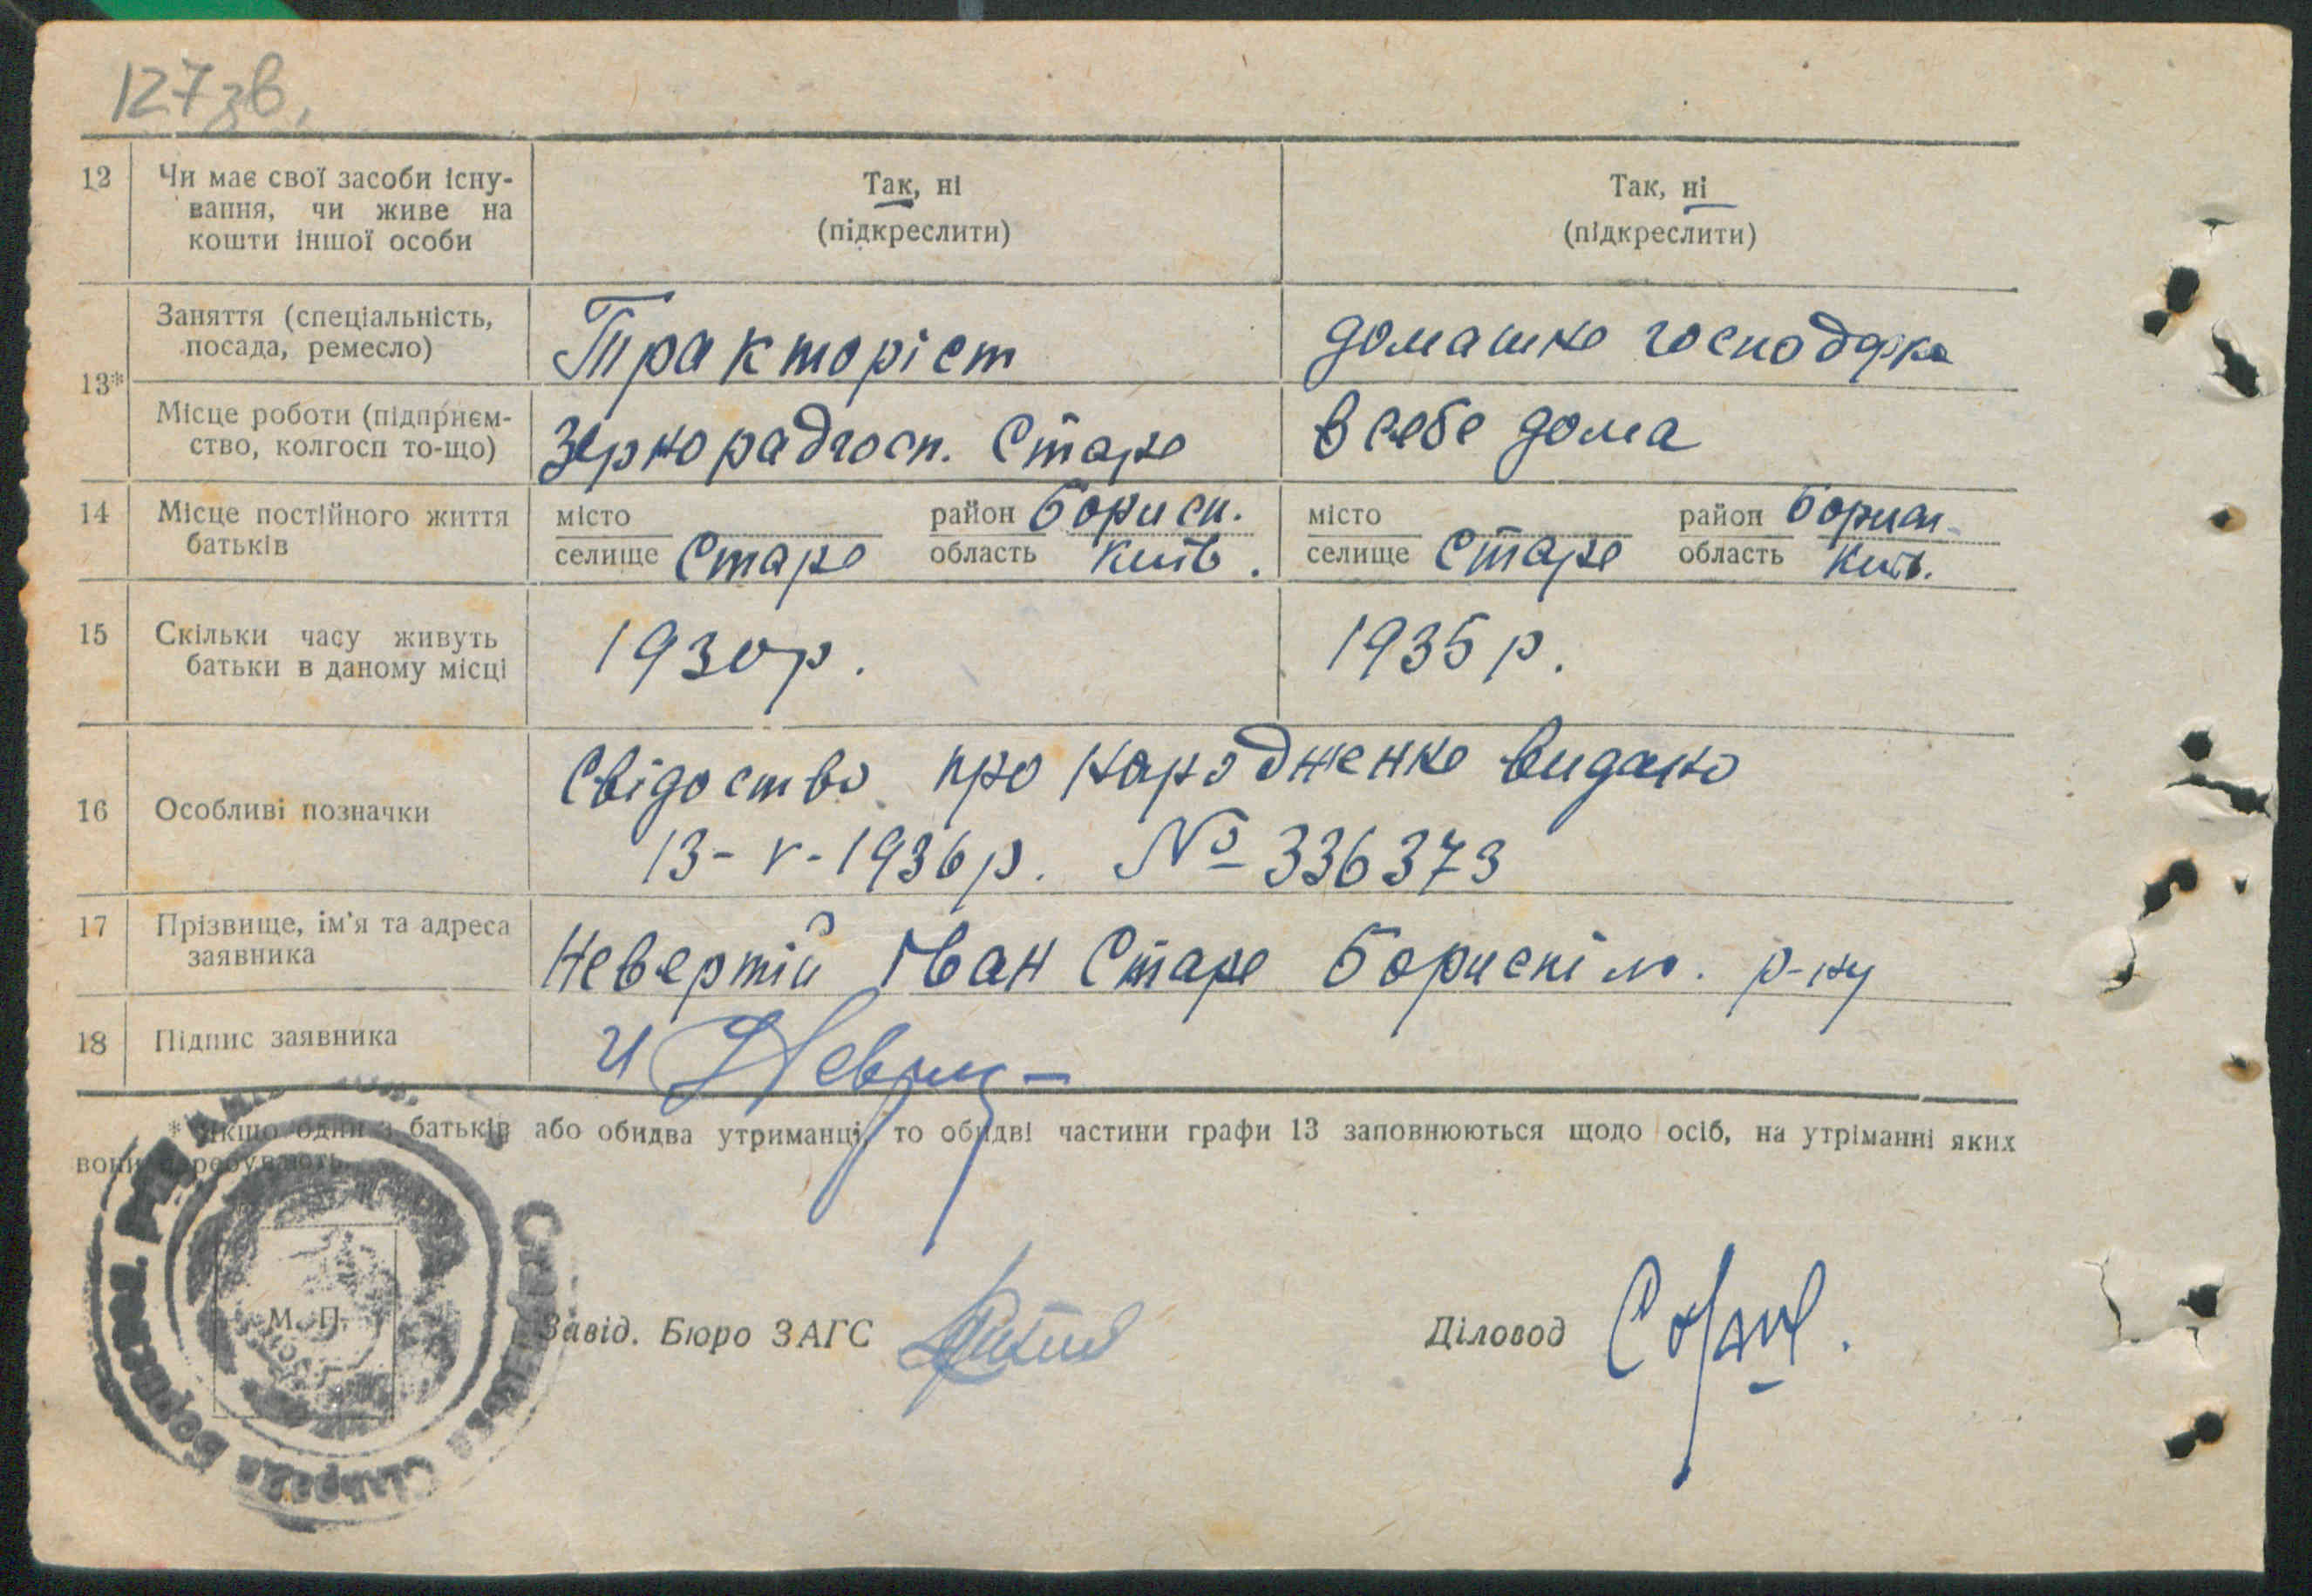 127 зв.
12 Чи має свої засоби існу- Так, ні Так, ні
вання, чи живе на (підкреслити) (підкреслити)
кошти іншої особи
13* Заняття (спеціальність, Тракторіст домашне господарка
посада, ремесло)
Місце роботи (підприєм- Зернорадгосп. Старе в себе дома
ство, колгосп то-що)
14 Місце постійного життя місто район Борисп. місто район
батьків селище Старе область Київ. селище Старе область Київ.
15 Скільки часу живуть 1930 р. 1935 р.
батьки в даному місці
16 Особливі позначки Свідоство про народжене видано
13-V-1936 р. № 336373
17 Прізвище, ім'я та адреса Невертій Іван Старе р-ну
заявника
18 Підпис заявника
* Якщо один з батьків або обидва утриманці, то обидві частини графи 13 заповнюються щодо осіб, на утріманні яких
вони перебувають.
М. П. Завід. Бюро ЗАГС Діловод